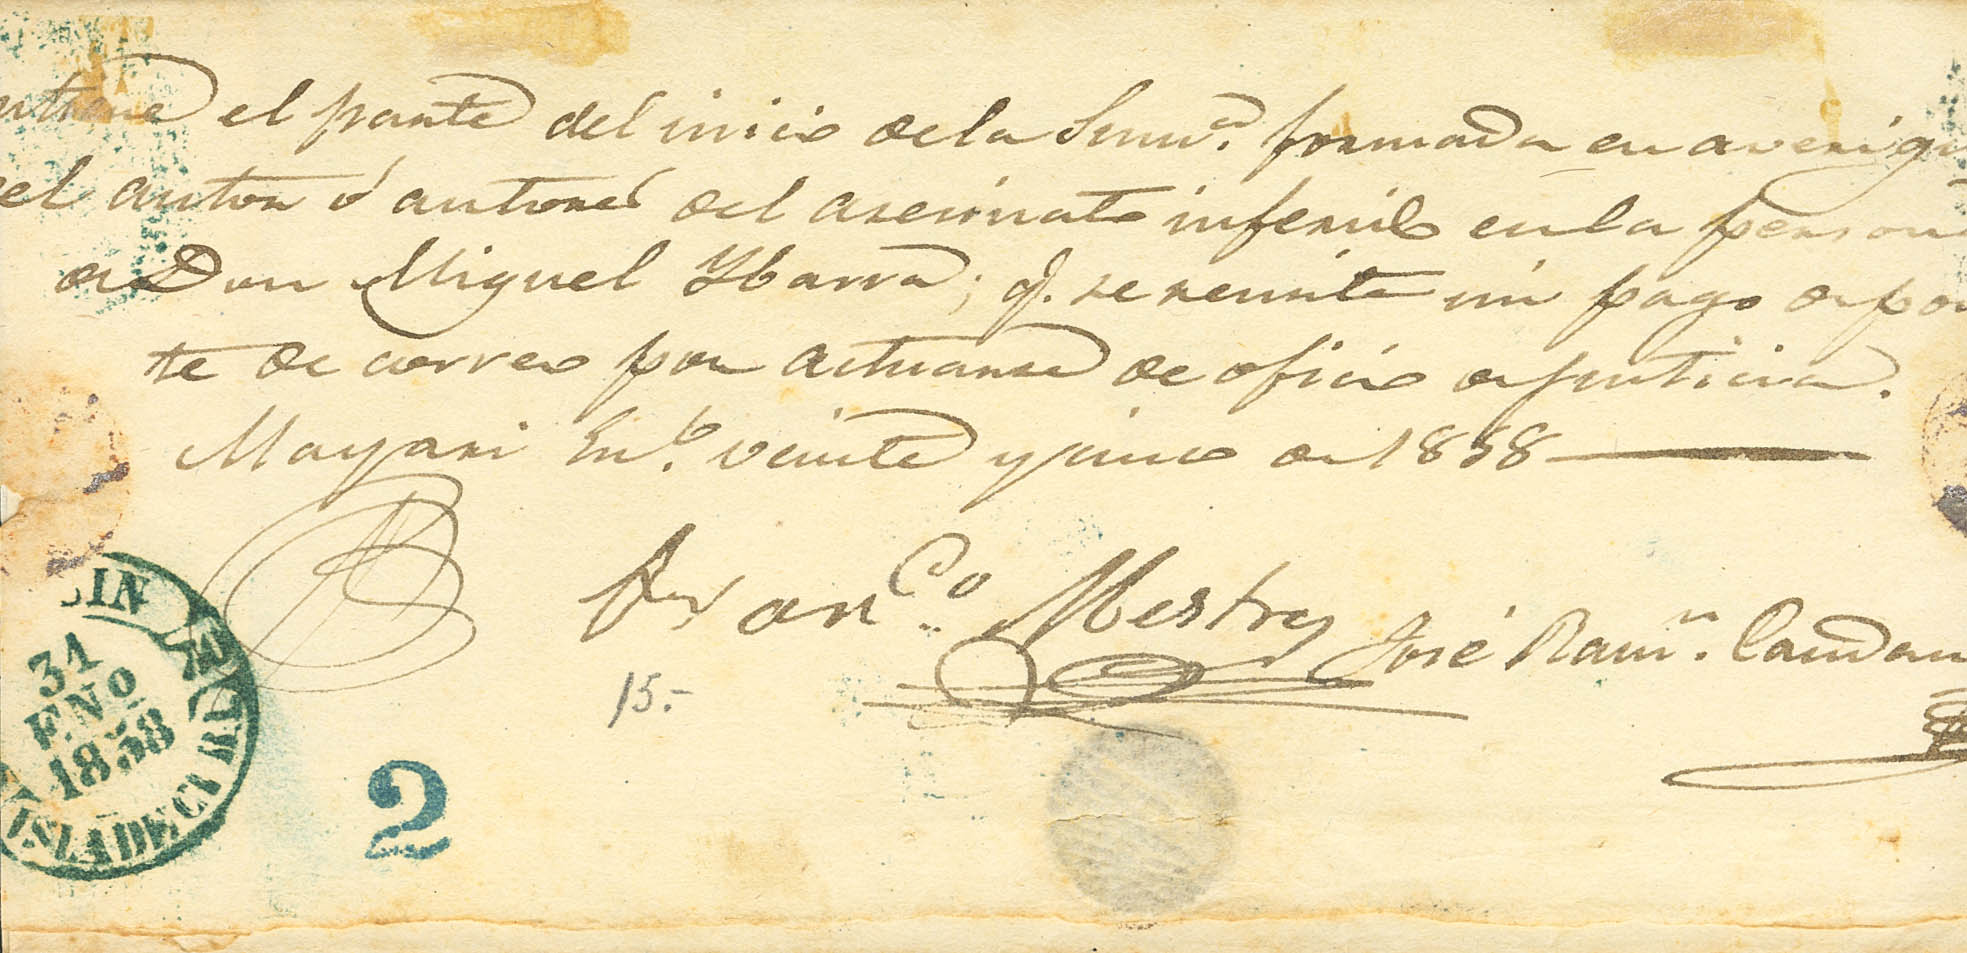 ntiene el parte del inicio de la Sum.ª formada en averigu
el autor ó autores del asesinato inferido en la persona
de Don Miguel Ybarra; q.e se remite sin pago de por
te de correo por actuarse de oficio de justicia.
Mayari En.º veinte y cinco de 1858
Fran.co Mestre José Ram.n Candan
15.-
31
ENO
1858
ISLA DE CUBA
2